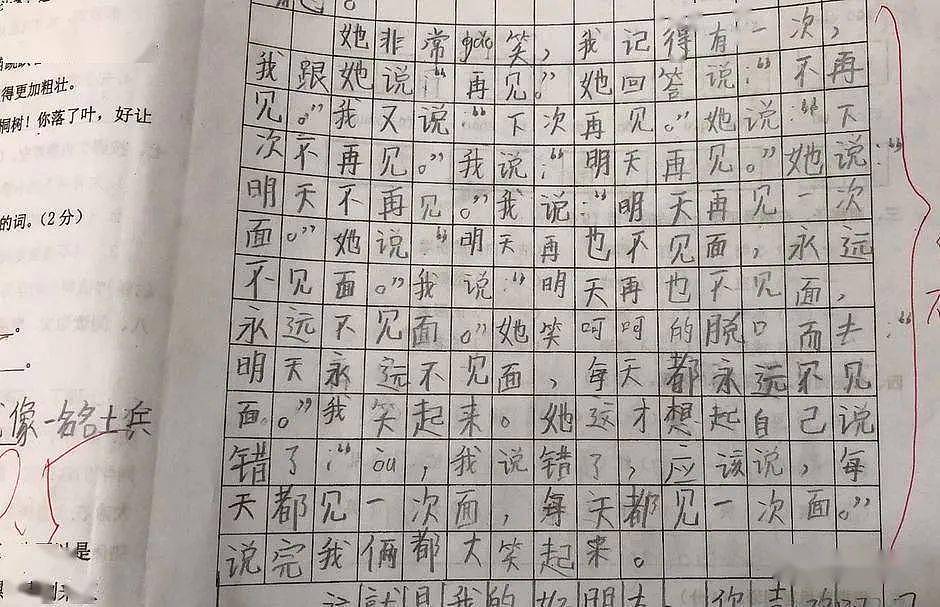 她非常gǎo笑，我记得有一次，
我跟她说：“再见。”她回答说：“不再
见。”我又说：“下次再见。”她说：“下
次不再见。”我说：“明天再见。”她说：“
明天不再见。”我说：“明天再见一次
面。”她说：“明天再也不见面，永远
不见面。”我说：“明天再也不见面，
永远不见面。”她笑呵呵的脱口而去：“
明天永远不见面，每天都永远不见
面。”我笑起来。她这才想起自己说
错了：“òu，我说错了，应该说，每
天都见一次面，每天都见一次面。”
说完我俩都大笑起来。
这就是我的好朋友
得更加粗壮。
桐树！你落了叶，好让
的词。（2分）
像一名名士兵
是